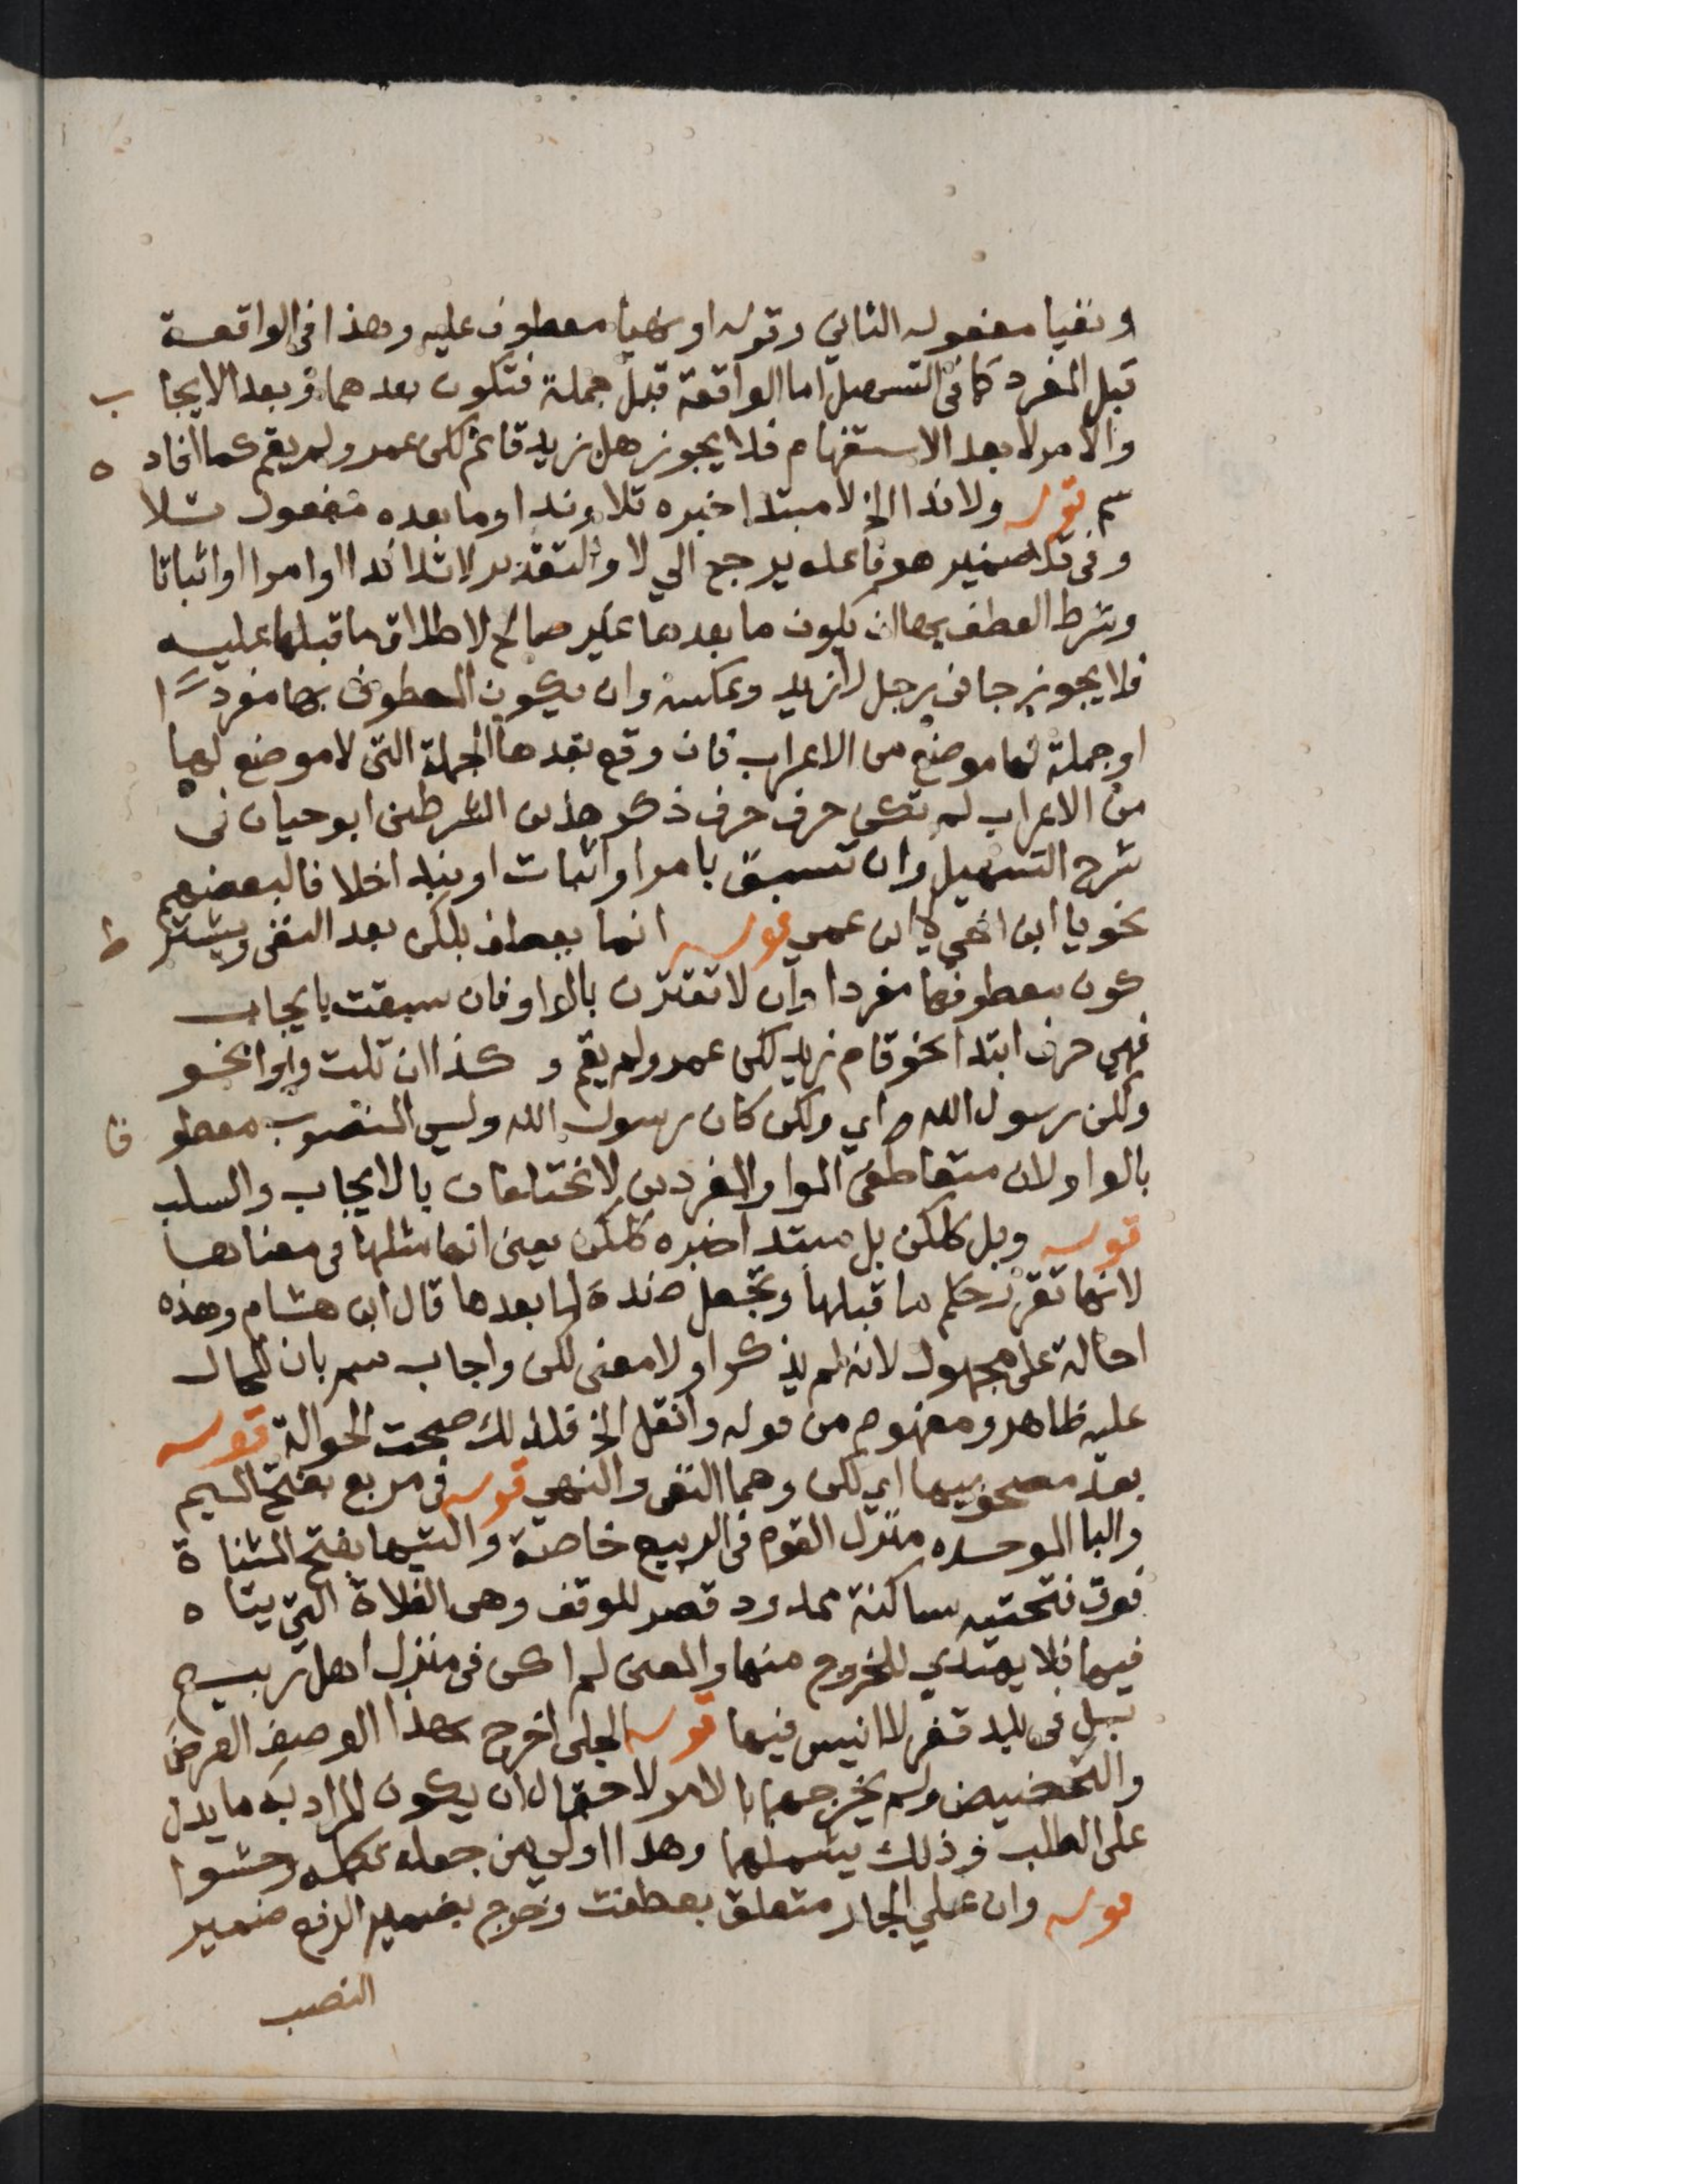 ونفيا مفعوله الثاني وقوله او نهيا معطوف عليه وهذا في الواقعة
قبل المفرد كما في التسهيل اما الواقعة قبل جملة فتكون بعدهما وبعد الايجا ب
والامر لا بعد الاستفهام فلا يجوز هل زيد قائم لكن عمرو لم يقم كما افاد ه
سم قوله ولا ندا الخ لا مبتدا خبره تلا وندا وما بعده مفعول تلا
وفي تلا ضمير هو فاعله يرجع الي لا والتقدير لا تلا ندا او امرا او اثباتا
وشرط العطف بها ان يكون ما بعدها غير صالح لاطلاق ما قبلها عليه
فلا يجوز جاني رجل لا زيد وعكسه وان يكون المعطوف بها مفردا
او جملة لها موضع من الاعراب فان وقع بعدها الجملة التي لا موضع لها
من الاعراب لم تكن حرف حرف ذكر هذين الشرطين ابو حيان في
شرح التسهيل وان تسبق بامر او اثبات او بندا خلافا لبعضهم
نحو يا ابن اخي لا ابن عمي قوله انما يعطف بلكن بعد النفي ويشتر ط
كون معطوفها مفردا وان لا تقترن بالواو فان سبقت بايجاب
فهي حرف ابتدا نحو قام زيد لكن عمرو لم يقم وكذا ان تلت واوا نحو
ولكن رسول الله اي ولكن كان رسول الله وليس المنصوب معطو فا
بالواو لان متعاطفي الواو المفردين لا يختلفان بالايجاب والسلب
قوله وبل كلكن بل مبتدا خبره كلكن يعني انها مثلها في معناها
لانها تقرر حكم ما قبلها وتجعل ضده لما بعدها قال ابن هشام وهذه
احالة على مجهول لانه لم يذكر اولا معنى لكن واجاب سم بان المحال
عليه ظاهر ومفهوم من قوله وانقل الخ فلذلك صحت الحوالة قوله
بعد مصحوبيها اي لكن وهما النفي والنهي قوله في مربع بفتح الميم
والبا الموحده منزل القوم في الربيع خاصة والتيها بفتح المثناة
فوق فتحتيه ساكنة ممدود قصر للوقف وهى الفلاة التي يتا ه
فيها فلا يهتدي للخروج منها والمعنى لم اكن في منزل اهل ربيع
بل في بلد قفر لا انيس فيها قوله الجلى اخرج بهذا الوصف العرض
والتحضيض ولم يخرجهما بالامر لاحتمال ان يكون المراد به ما يدل
على الطلب وذلك يشملهما وهذا اولي من جعله تكملة وحشوا
قوله وان علي الجار متعلق بعطفت وخرج بضمير الرفع ضمير
النصب